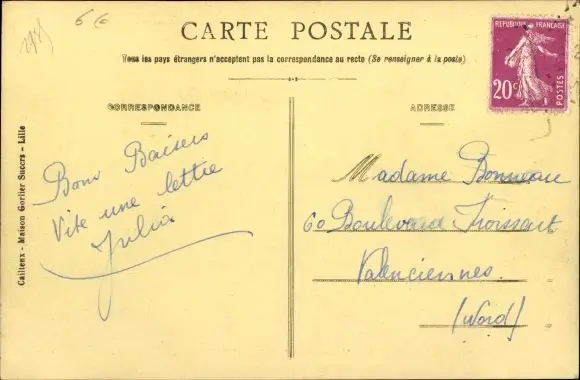 6 €
CARTE POSTALE
Tous les pays étrangers n'acceptent pas la correspondance au recto (Se renseigner à la poste)
CORRESPONDANCE
Bons Baisers
Vite une lettre
Julia
Cailteux - Maison Gorlier Succrs - Lille
REPUBLIQUE FRANÇAISE
20c
POSTES
ADRESSE
Madame Bonneau
60 Boulevard Froissart
Valenciennes
(Nord)